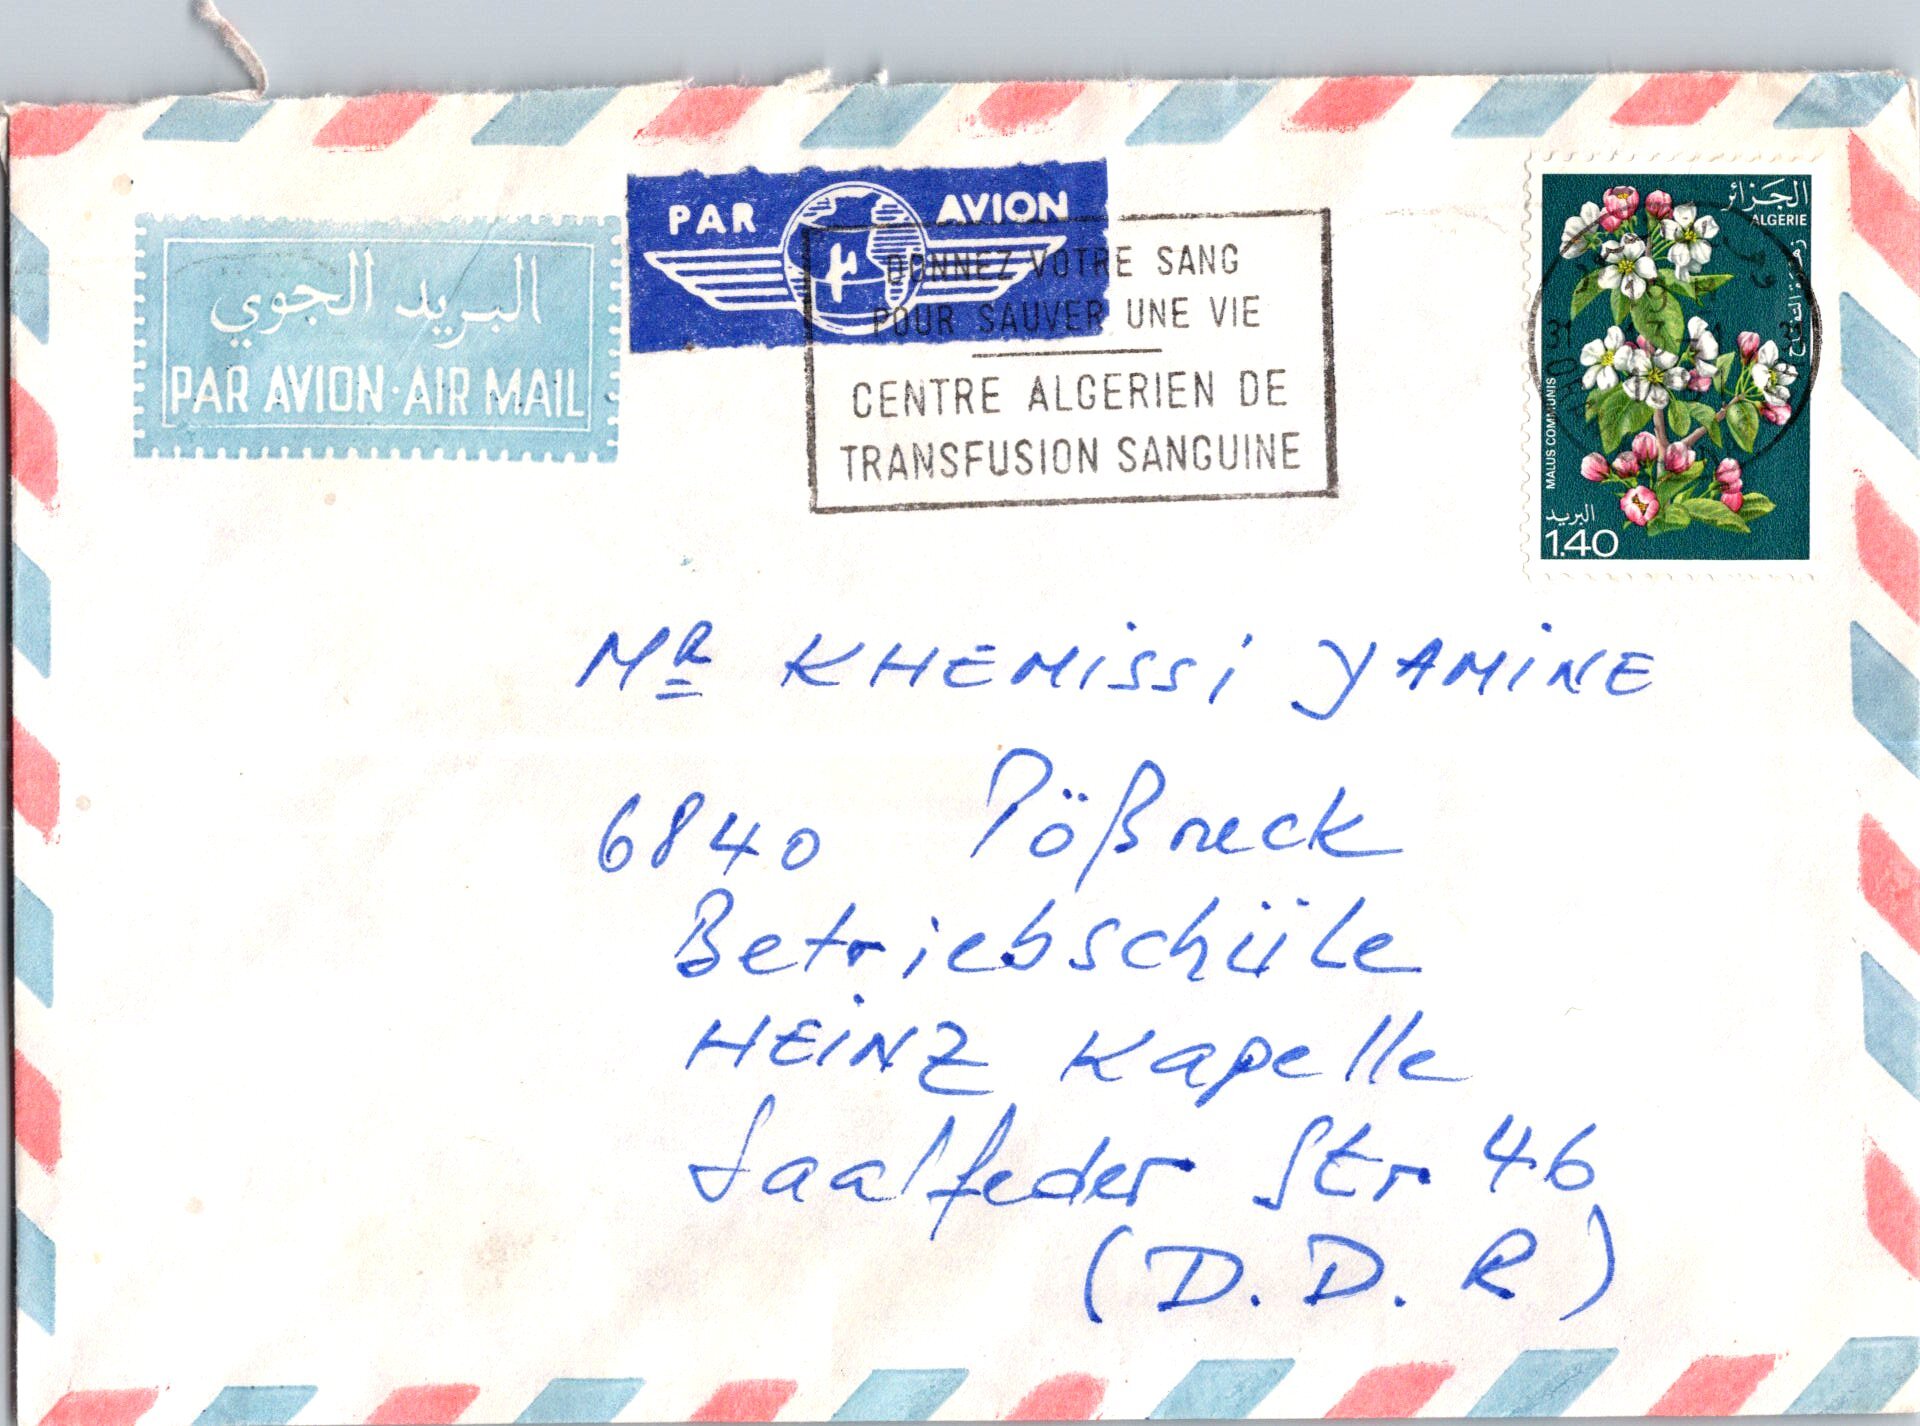 البريد الجوي
PAR AVION · AIR MAIL
PAR AVION
DONNEZ VOTRE SANG
POUR SAUVER UNE VIE
CENTRE ALGERIEN DE
TRANSFUSION SANGUINE
الجزائر
ALGERIE
زهرة التفاح
MALUS COMMUNIS
البريد
1.40
MR KHEMISSI YAMINE
6840 Pößneck
Betriebschüle
HEINZ Kapelle
Saalfeder Str 46
(D.D.R)